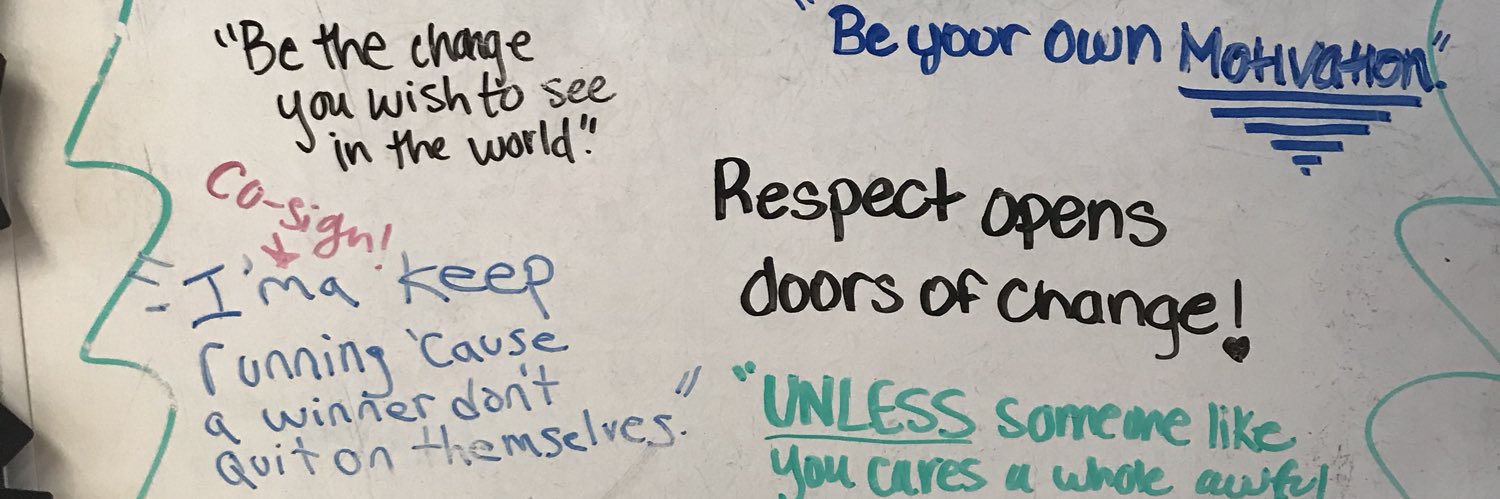 "Be the change
you wish to see
in the world."
Co-sign!
"I'ma keep
running 'cause
a winner don't
quit on themselves."
"Be your own Motivation."
Respect opens
doors of change!
"UNLESS someone like
you cares a whole awful